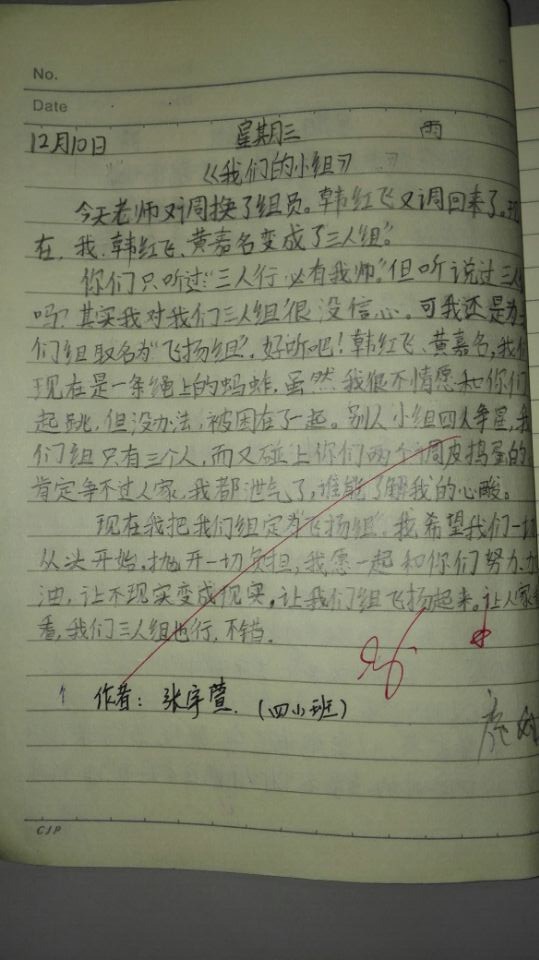 No.
Date
12月10日 星期三 雨
《我们的小组》
今天老师又调换了组员。韩红飞又调回来了。现
在,我、韩红飞、黄嘉名变成了三人组。
你们只听过“三人行,必有我师。”但听说过三人
吗?其实我对我们三人组很没信心。可我还是为
们组取名为“飞扬组”,好听吧!韩红飞、黄嘉名,我们
现在是一条绳上的蚂蚱,虽然我很不情愿和你们
起跳,但没办法,被困在了一起。别人小组四人争星,我
们组只有三个人,而又碰上你们两个调皮捣蛋的
肯定争不过人家,我都泄气了,谁能了解我的心酸。
现在我把我们组定为“飞扬组”,我希望我们一切
从头开始,抛开一切负担,我愿一起和你们努力、加
油,让不现实变成现实,让我们组飞扬起来,让人家
看,我们三人组也行,不错。
作者:张宇萱.(四小班)
CJP